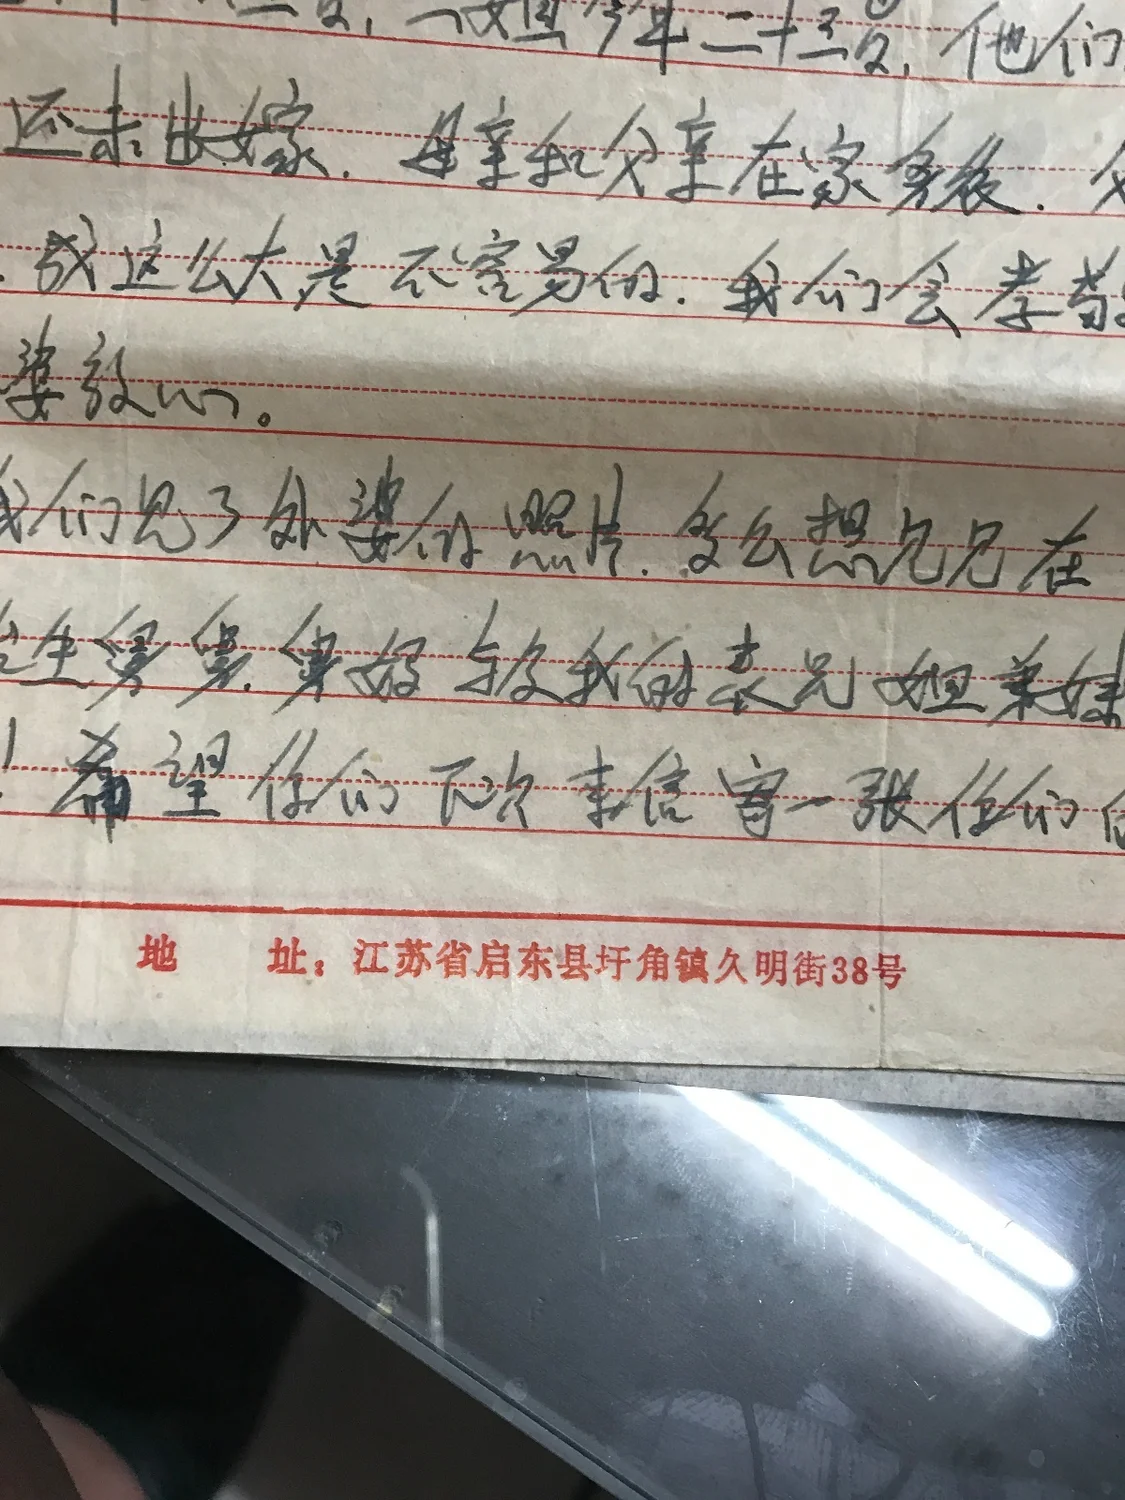 岁, 一女理今年二十三岁, 他们
还未出嫁. 母亲和父亲在家务农. 父
. 我这么大是不容易的. 我们会孝敬
婆放心。
我们见了外婆的照片. 多么想见见在
生舅舅. 舅妈与及我的表兄姐弟妹
! 希望你们下次来信寄一张你们的
地 址：江苏省启东县圩角镇久明街38号